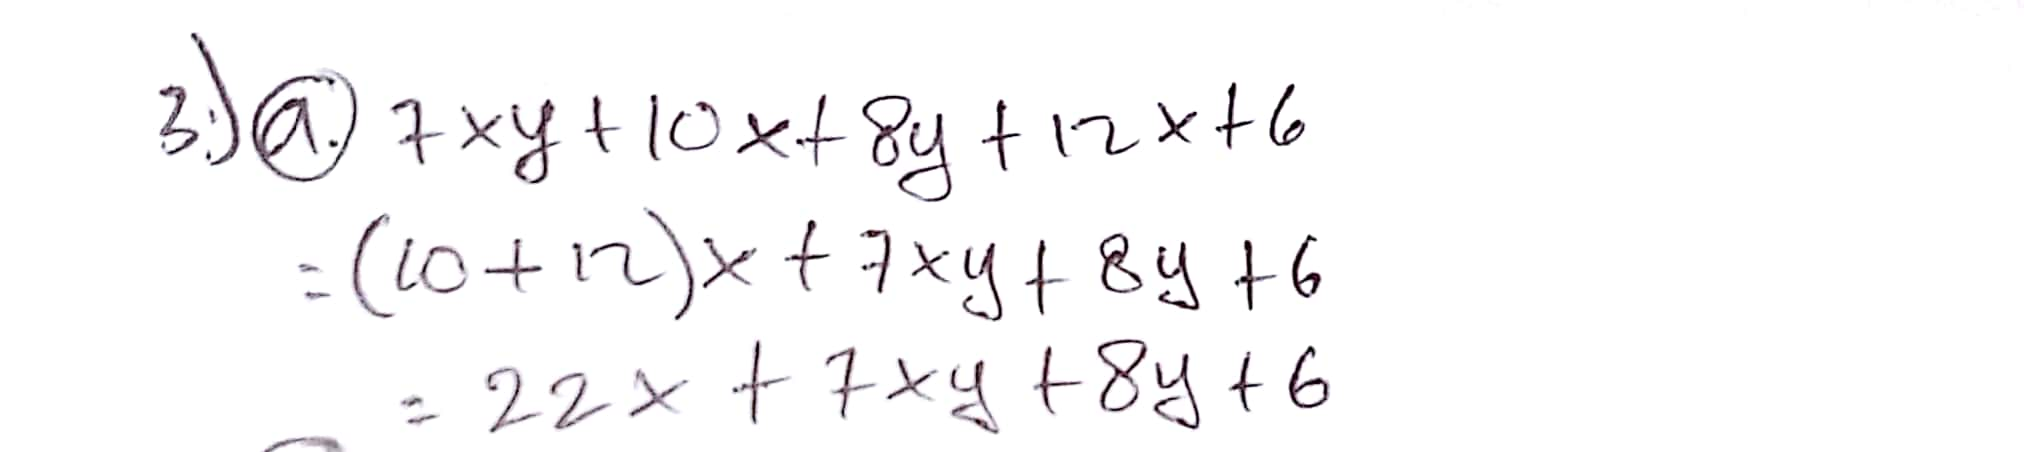 3.) a. 7xy + 10x + 8y + 12x + 6
= (10 + 12)x + 7xy + 8y + 6
= 22x + 7xy + 8y + 6